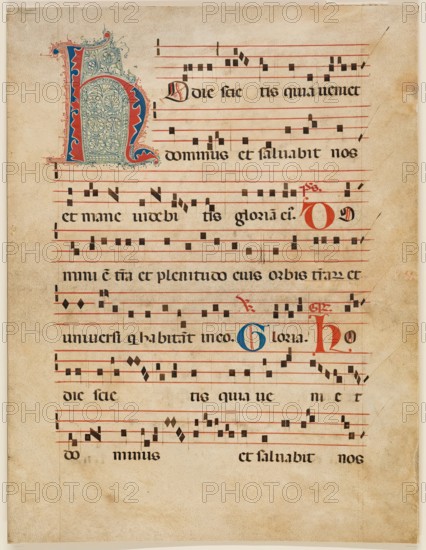 Hodie scie tis quia veniet
dominus et salvabit nos
et mane videbi tis gloriā ei⁹. ps. Do
mini ē tr̄a et plenitudo eius orbis tr̄arꝝ et
universi q̄ habitāt in eo. V. Gloria. Gr. Ho
die scie tis quia ve ni e t
do minus et salvabit nos
PHOTO12